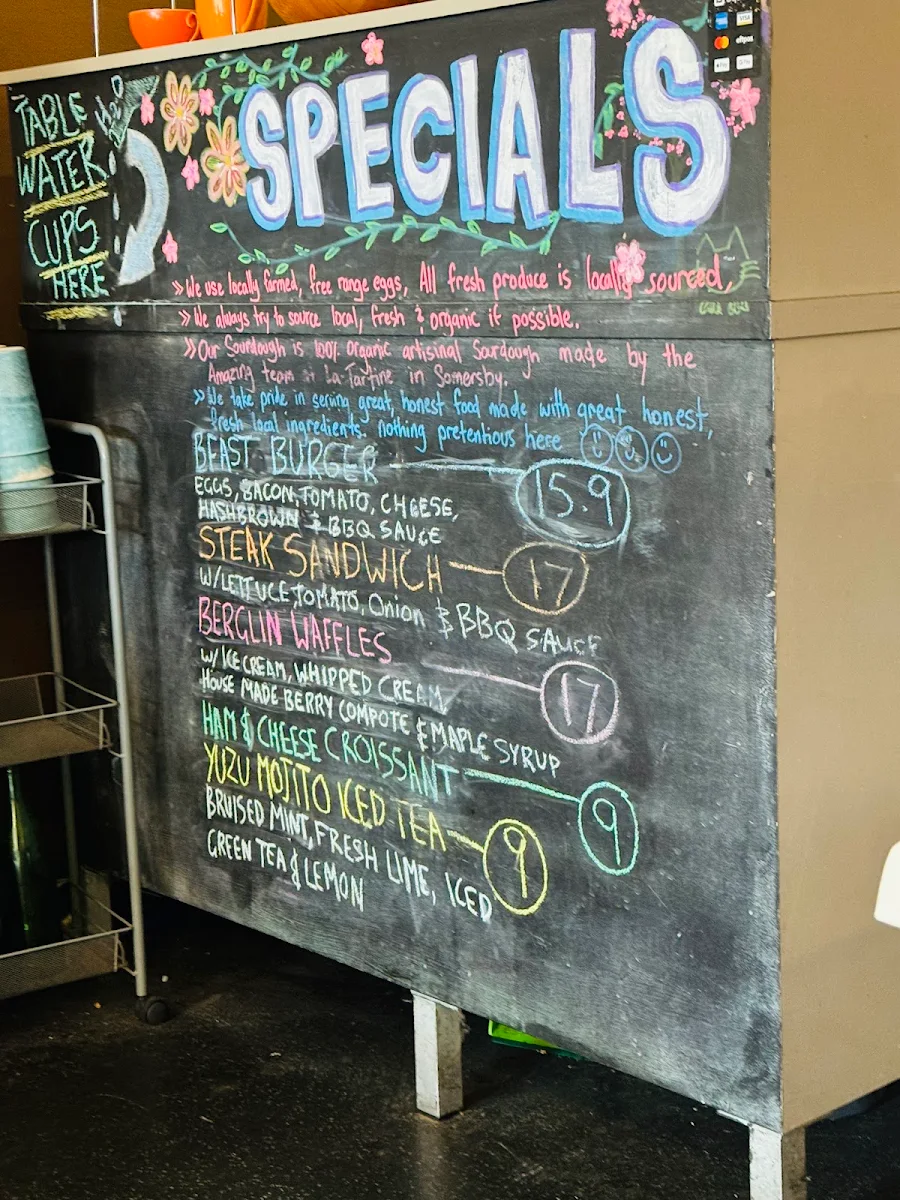 TABLE
WATER
CUPS
HERE
H2O
SPECIALS
VISA
eftpos
Pay
» We use locally farmed, free range eggs, All fresh produce is locally sourced,
» We always try to source local, fresh & organic if possible.
» Our Sourdough is 100% organic artisinal Sourdough made by the
Amazing team at La Tartine in Somersby.
» We take pride in serving great, honest food made with great honest,
fresh local ingredients. nothing pretentious here
BEAST BURGER 15.9
EGGS, BACON, TOMATO, CHEESE,
HASHBROWN & BBQ SAUCE
STEAK SANDWICH 17
W/LETTUCE, TOMATO, Onion & BBQ SAUCE
BERGLIN WAFFLES 17
W/ ICE CREAM, WHIPPED CREAM
HOUSE MADE BERRY COMPOTE & MAPLE SYRUP
HAM & CHEESE CROISSANT 9
YUZU MOJITO ICED TEA 9
BRUISED MINT, FRESH LIME, ICED
GREEN TEA & LEMON